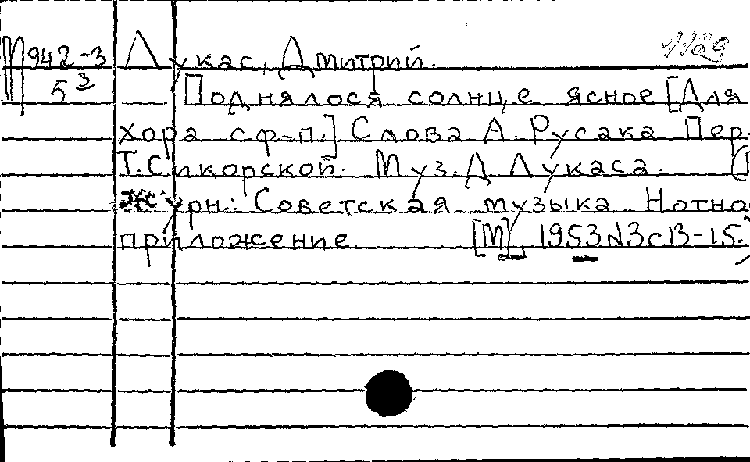 П942-3 Лукас, Дмитрий. 1129
5³ Поднялося солнце ясное [Для
хора с ф-п.] Слова А. Русака Пер.
Т. Сикорской. Муз. Д. Лукаса. (
Журн: Советская музыка Нотно
приложение [М], 1953 N3 с 13-15.)